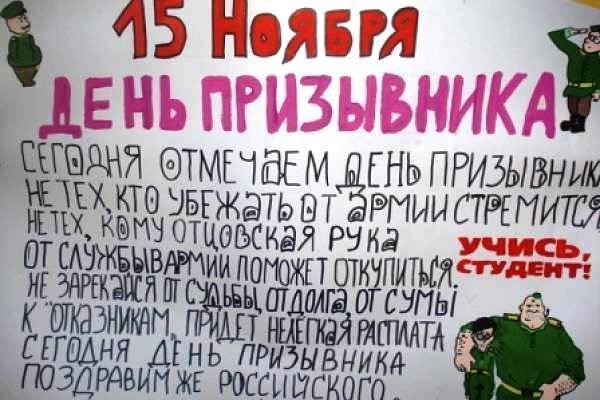 15 НОЯБРЯ
ДЕНЬ ПРИЗЫВНИКА
СЕГОДНЯ ОТМЕЧАЕМ ДЕНЬ ПРИЗЫВНИКА
НЕ ТЕХ, КТО УБЕЖАТЬ ОТ АРМИИ СТРЕМИТСЯ,
НЕ ТЕХ, КОМУ ОТЦОВСКАЯ РУКА
ОТ СЛУЖБЫ В АРМИИ ПОМОЖЕТ ОТКУПИТЬСЯ.
НЕ ЗАРЕКАЙСЯ ОТ СУДЬБЫ, ОТ ДОЛГА, ОТ СУМЫ
К "ОТКАЗНИКАМ" ПРИДЕТ НЕЛЕГКАЯ РАСПЛАТА
СЕГОДНЯ ДЕНЬ ПРИЗЫВНИКА
ПОЗДРАВИМ ЖЕ РОССИЙСКОГО
УЧИСЬ,
СТУДЕНТ!